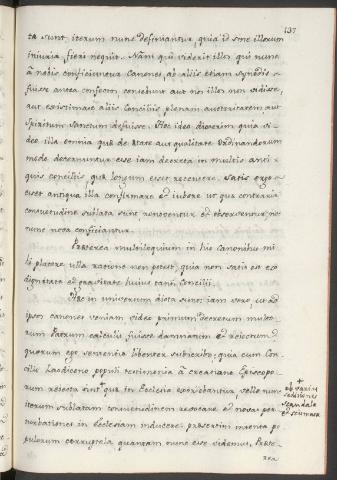 137
ta sunt, iterum nunc definiantur, quia id sine illorum
iniuria fieri nequit. Nam qui viderit illos qui nunc
à nobis conficiuntur Canones, ab aliis etiam Synodis
fuisse antea confectos, censebunt aut nos illos non vidisse,
aut existimare aliis Conciliis plenam auctoritatem, aut
Spiritum Sanctum defuisse. Hoc ideo dixerim quia vi-
deo illa omnia quæ de ætate aut qualitate Ordinandorum
modo determinantur esse iam decreta in multis anti-
quis conciliis quæ longum esset recensere. Satis ergo
esset antiqua illa confirmare et iubere ut quæ contraria
consuetudine sublata sunt, renovencur et observentur, no-
runc nova conficiantur.
Præterea multiloquium in his Canonibus mi-
hi placere ulla ratione non potest, quia non satis est ex
dignitate et gravitate huius tanti Concilii.
Hæc in universum dicta sunt; iam vero ut ad
ipsos canones veniam video primum Decretum multo-
rum Patrum calculis fuisse damnatum et reiectum
quorum ego sententiæ libenter subscribo; quia cum Con-
cilii Laodiceno populi testimonia à creatione Episcopo-
rum reiecta sint, quæ in Ecclesia excitabantur, velle nunc
iterum sublatam consuetudinem revocare et novas per-
turbationes in Ecclesiam inducere, præsertim inventa po-
pulorum corruptela quantam nunc esse videmus. Præte-
rea
+
ob varias
seditiones
scandala
et scismata